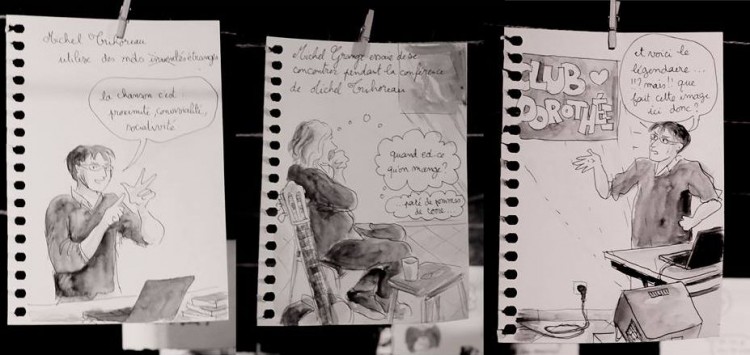 Michel Trihoreau
utilise des mots inusités étranges
la chanson c'est
proximité, convivialité,
Michel Grange essaie de se
concentrer pendant la conférence
de Michel Trihoreau
quand est-ce
qu'on mange?
paté de pommes
de terre
CLUB
DOROTHÉE
et voici le
légendaire...
!!? mais!! que
fait cette image
ici donc?